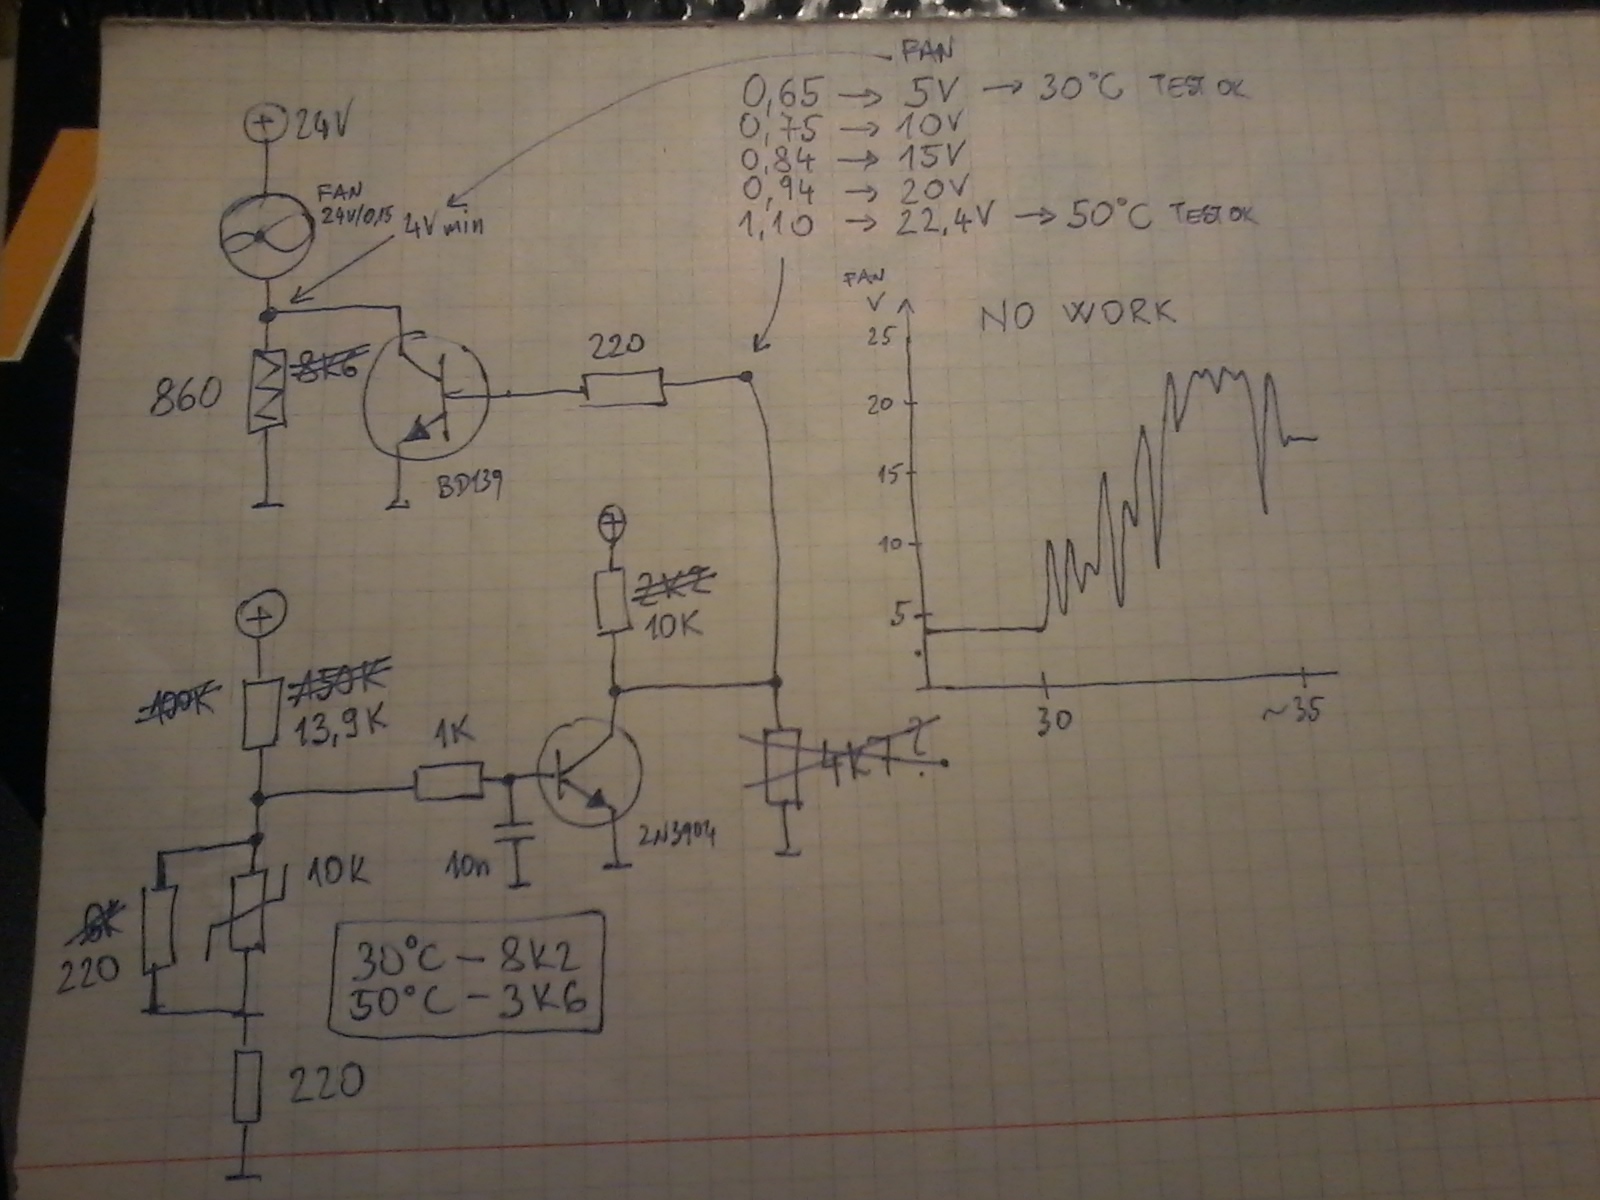 FAN
0,65 → 5V → 30°C TEST OK
0,75 → 10V
0,84 → 15V
0,94 → 20V
1,10 → 22,4V → 50°C TEST OK
+ 24V
FAN
24V/0,15
4V min
FAN
V
NO WORK
25
20
15
10
5
30
~35
860
8K6
220
BD139
+
2K2
10K
+
100K
150K
13,9K
1K
4K7?
2N3904
10n
10K
220
30°C – 8K2
50°C – 3K6
220